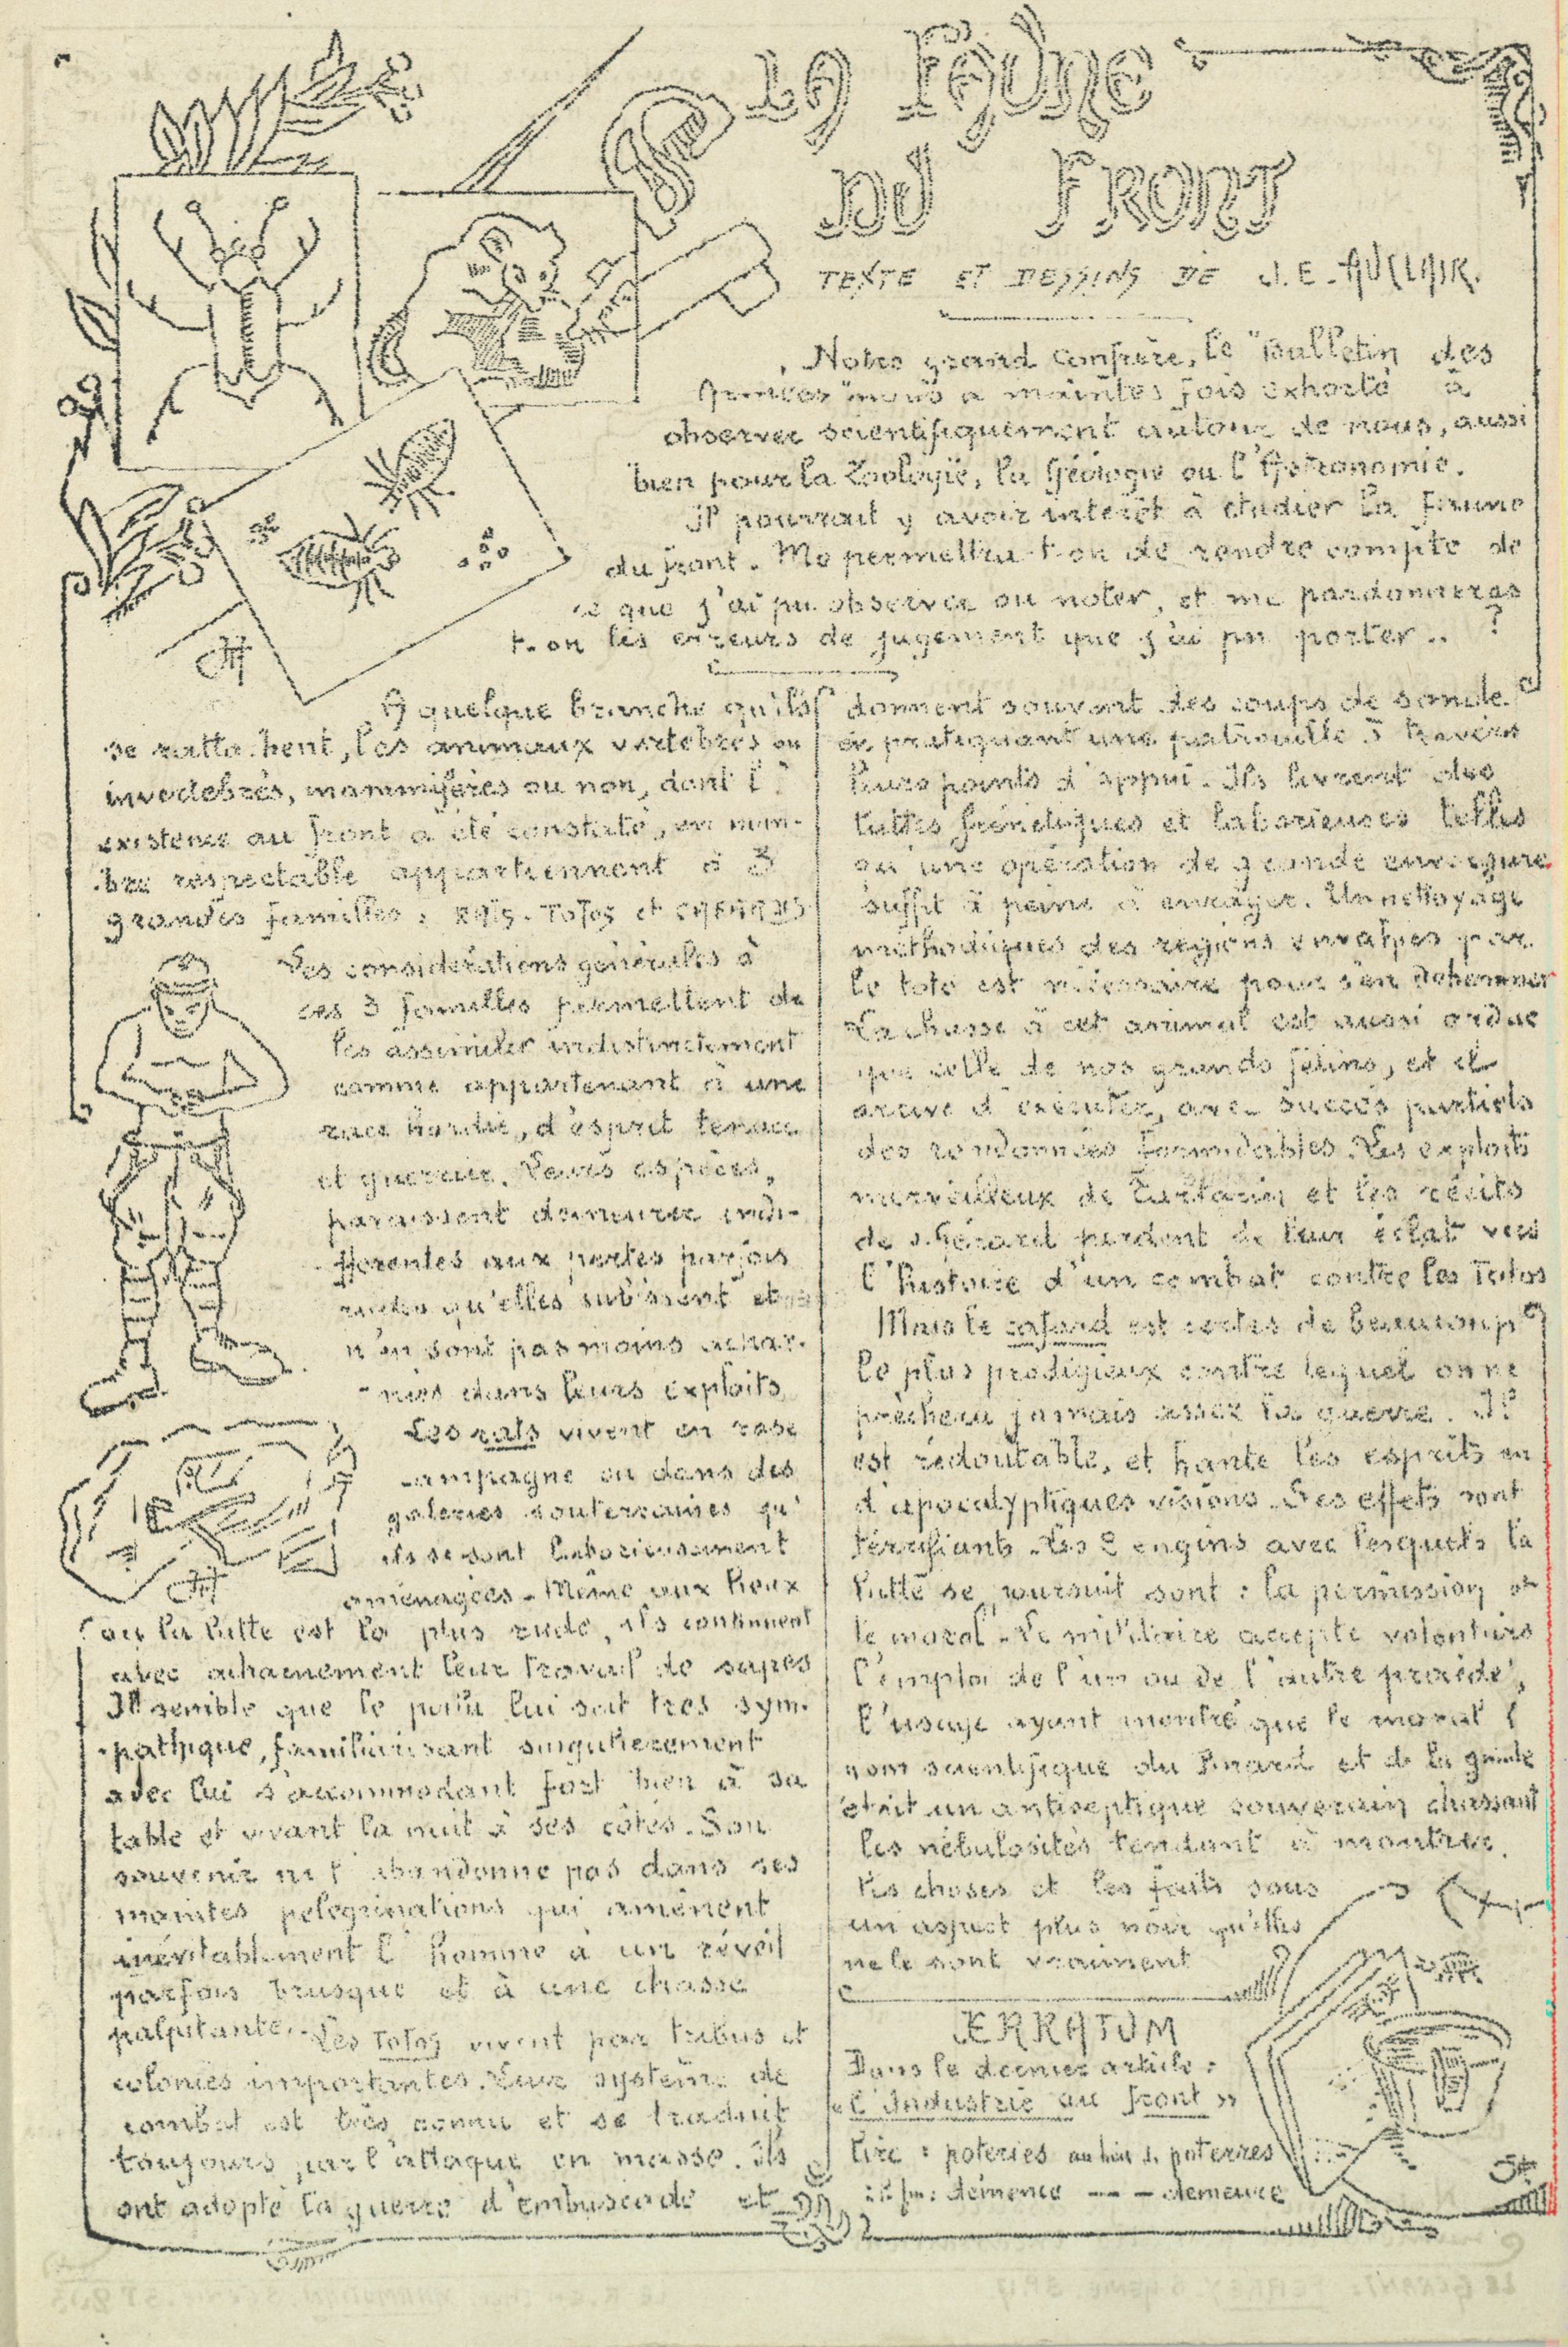 La Faune
du Front
TEXTE ET DESSINS DE J.E. AUCLAIR.
Notre grand confrère, le "Bulletin des
Armées" nous a maintes fois exhorté à
observer scientifiquement autour de nous, aussi
bien pour la Zoologie, la Géologie ou l'Astronomie.
Il pourrait y avoir intérêt à étudier la faune
du front. Me permettra-t-on de rendre compte de
ce que j'ai pu observer ou noter, et me pardonneras
t-on les erreurs de jugement que j'ai pu porter.. ?
A quelque branche qu'ils
se rattachent, les animaux vertébrés ou
invertébrés, mammifères ou non, dont l'
existence au front a été constaté, en nom-
bre respectable appartiennent à 3
grandes familles : RATS - TOTOS et CAFARDS
Les considérations générales à
ces 3 familles permettent de
les assimiler indistinctement
comme appartenant à une
race hardie, d'esprit tenace
et guerrier. Leurs espèces,
paraissent demeurer indi-
fférentes aux pertes parfois
rudes qu'elles subissent et
n'en sont pas moins achar-
nées dans leurs exploits
Les rats vivent en rase
campagne ou dans des
galeries souterraines qu'
ils se sont laborieusement
aménagées. Même aux lieux
où la lutte est la plus rude, ils continuent
avec acharnement leur travail de sapes
Il semble que le poilu lui soit très sym-
pathique, familiarisant singulièrement
avec lui s'accommodant fort bien à sa
table et vivant la nuit à ses côtés. Son
souvenir ne l'abandonne pas dans ses
maintes pelegrinations qui amènent
inévitablement l'homme à un réveil
parfois brusque et à une chasse
palpitante.
Les TOTOS vivent par tribus et
colonies importantes. Leur système de
combat est très connu et se traduit
toujours par l'attaque en masse. Ils
ont adopté la guerre d'embuscade et
donnent souvent des coups de sonde
en pratiquant une patrouille à travers
leurs points d'appui. Ils livrent des
luttes frénétiques et laborieuses telles
qu'une opération de grande envergure
suffit à peine à enrayer. Un nettoyage
méthodiques des régions envahies par
le toto est nécessaire pour s'en
La chasse à cet animal est aussi ardue
que celle de nos grands félins, et il
arrive d'exécuter, avec succès partiels
des randonnées formidables. Les exploits
merveilleux de Tartarin et les récits
de J. Gérard perdent de leur éclat vers
l'histoire d'un combat contre les Totos
Mais le cafard est certes de beaucoup
le plus prodigieux contre lequel on ne
prêchera jamais assez la guerre. Il
est redoutable, et hante les esprits en
d'apocalyptiques visions. Ses effets sont
térrifiants. Les 2 engins avec lesquels la
lutte se poursuit sont : la permission et
le moral. Le militaire accepte volontiers
l'emploi de l'un ou de l'autre procédé,
l'usage ayant montré que le moral (
nom scientifique du Pinard et de la gniole
était un antiseptique souverain chassant
les nébulosités tendant à montrer
les choses et les faits sous
un aspect plus noir qu'elles
ne le sont vraiment
ERRATUM
Dans le dernier article :
« l'Industrie au front »
lire : poteries au lieu de poterres
démence -- - demeure